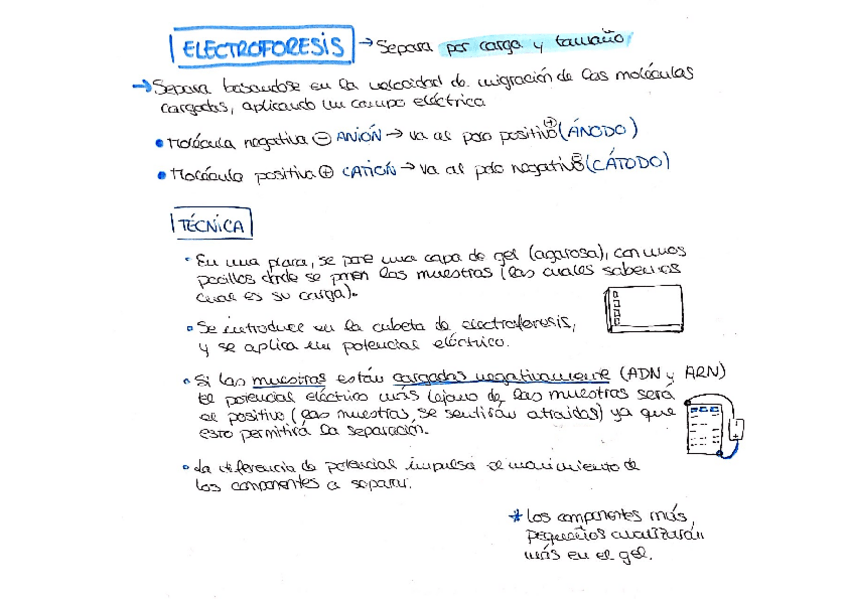 ELECTROFORESIS → Separa por carga y tamaño
→ Separa basandose en la velocidad de migración de las moléculas
cargadas, aplicando un campo eléctrico
• Molécula negativa ⊖ ANIÓN → va al polo positivo ⊕ (ÁNODO)
• Molécula positiva ⊕ CATIÓN → va al polo negativo ⊖ (CÁTODO)
TÉCNICA
• En una placa, se pone una capa de gel (agarosa), con unos
pocillos donde se ponen las muestras (las cuales sabemos
cual es su carga).
• Se introduce en la cubeta de electroferesis,
y se aplica un potencial eléctrico.
• Si las muestras están cargadas negativamente (ADN y ARN)
el potencial eléctrico más lejano de las muestras será
el positivo (las muestras, se sentirán atraidas) ya que
esto permitirá la separación.
• La diferencia de potencial impulsa el movimiento de
los componentes a separar.
* Los componentes más
pequeños
más en el gel.